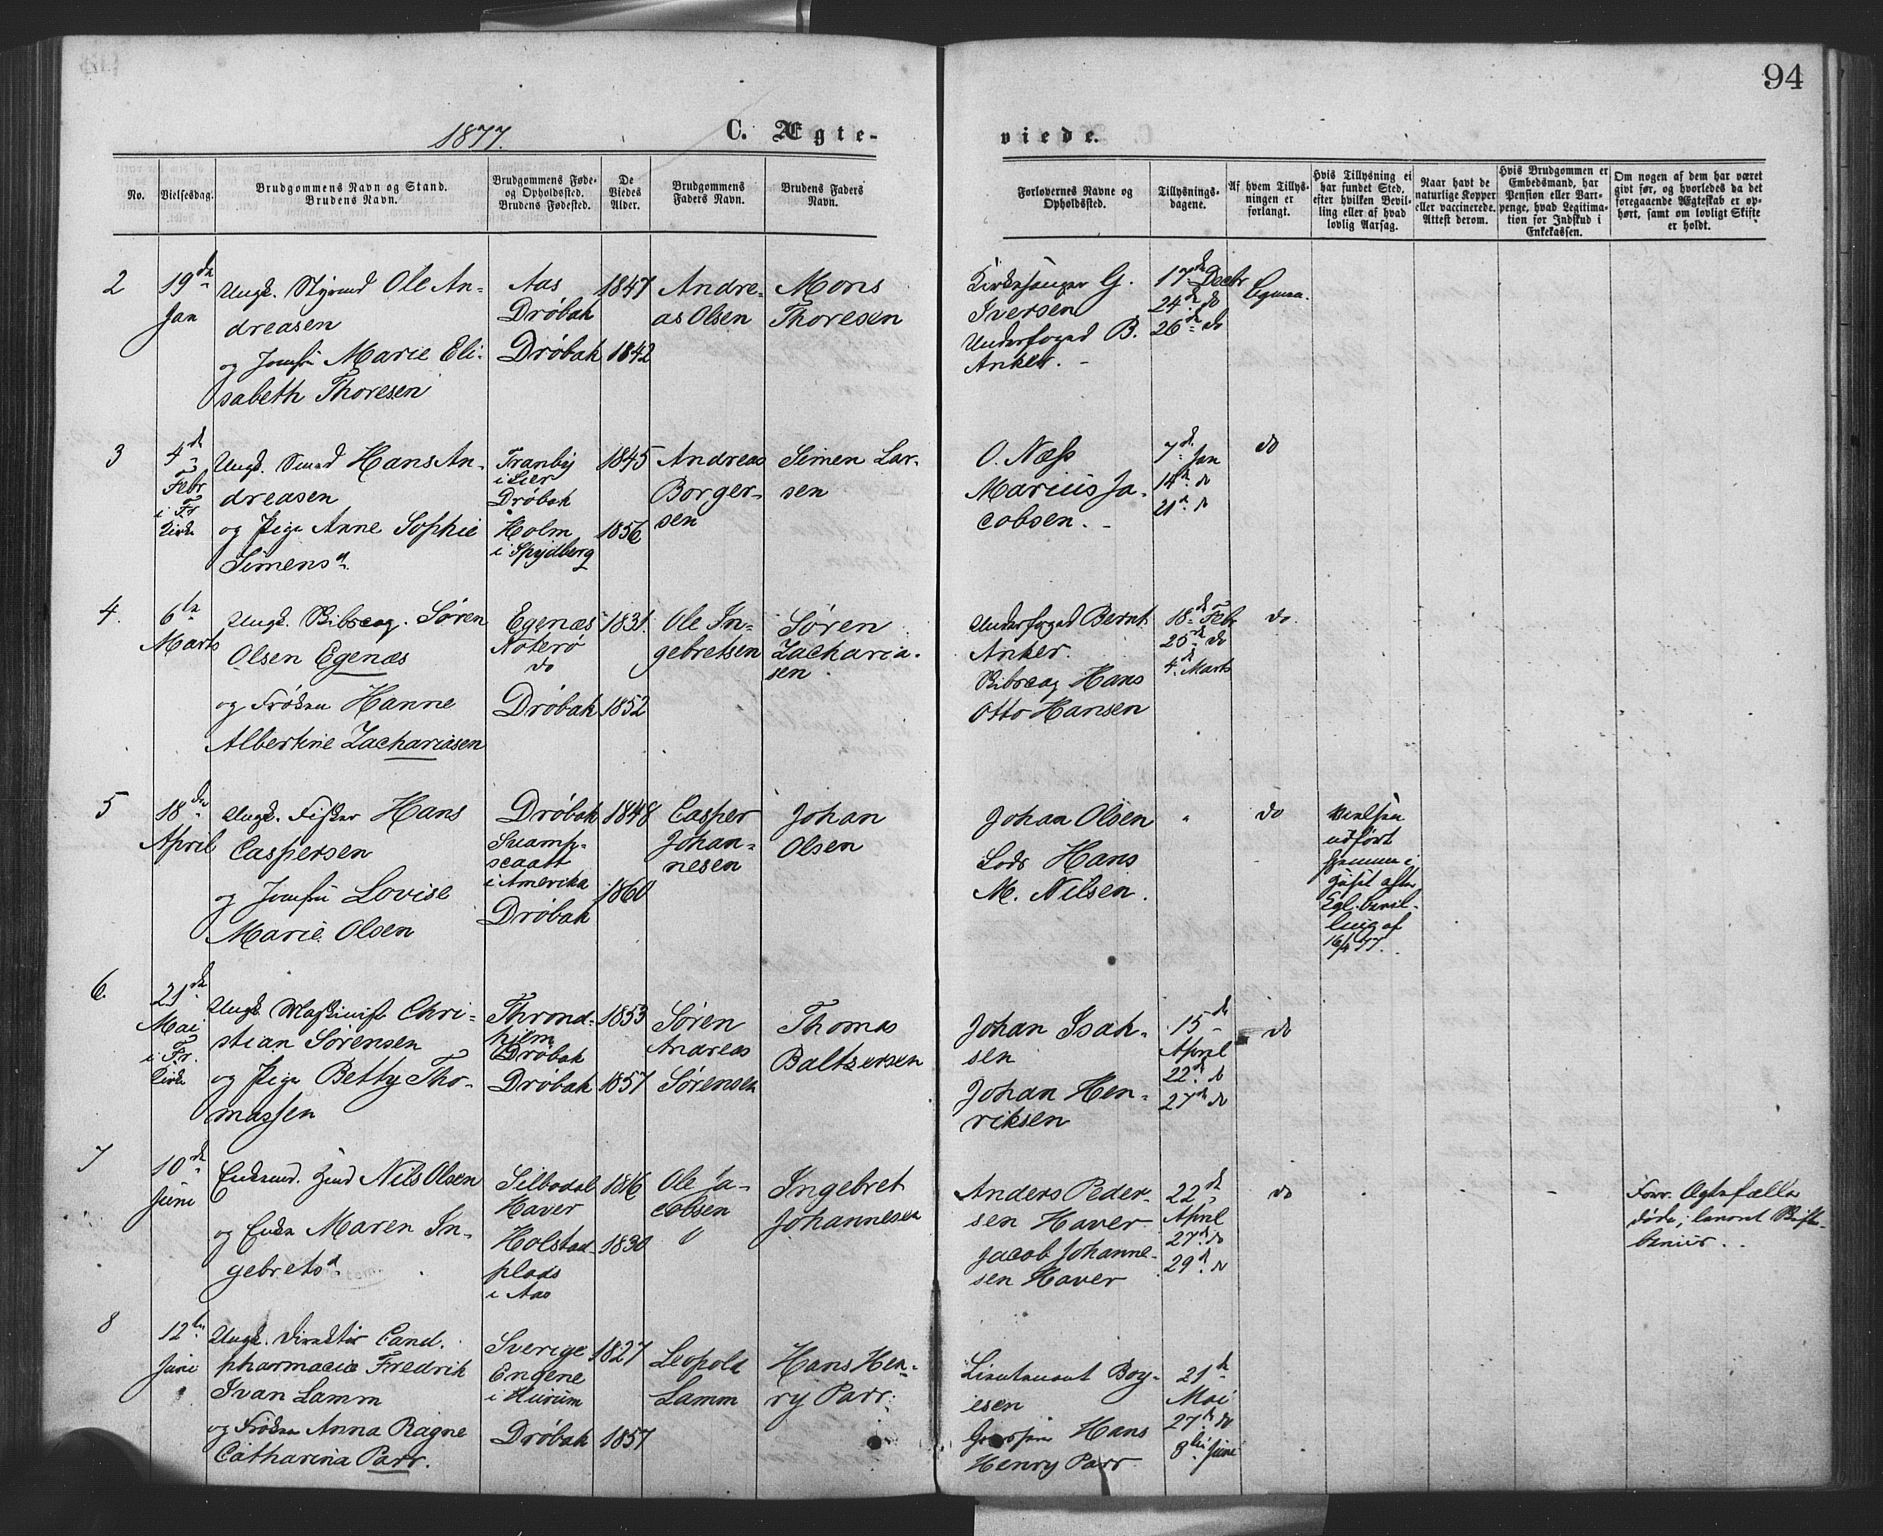 94
1877.
C. Ægte-
viede.
No.
Vielsesdag.
Brudgommens Navn og Stand.
Brudens Navn.
Brudgommens Føde-
og Opholdssted.
Brudens Fødested.
De
Viedes
Alder.
Brudgommens
Faders Navn.
Brudens Faders
Navn.
Forlovernes Navne og
Opholdssted.
Tillysnings-
dagene.
Af hvem Tillys-
ningen er
forlangt.
Hvis Tillysning ei
har fundet Sted,
efter hvilken Bevil-
ling eller af hvad
lovlig Aarsag.
Naar havt de
naturlige Kopper
eller vaccinerede.
Attest derom.
Hvis Brudgommen er
Embedsmand, har
Pension eller Vart-
penge, hvad Legitima-
tion for Indskud i
Enkekassen.
Om nogen af dem har været
givt før, og hvorledes da det
foregaaende Ægteskab er op-
hørt, samt om lovligt Skifte
er holdt.
2
19de
Jan
Ungk. Styrmd Ole An-
dreasen
og Jomfru Marie Eli-
sabeth Thoresen
Aas
Drøbak
Drøbak
1847
1842
Andre-
as Olsen
Mons
Thoresen
Kirkesanger G.
Iversen
Underfoged B.
Anker. -
17de Decbr
24de do
26de do
3
4de
Febr
i Fr
Kirke
Ungk. Smed Hans An-
dreasen
og Pige Anne Sophie
Simensd.
Tranby
i Lier
Drøbak
Holm
i Spydberg
1845
1856
Andreas
Borger-
sen
Simen Lar-
sen
O. Næss
Marius Ja-
cobsen. -
7de Jan
14de do
21de do
do
4.
6te
Marts
Ungk. Skibscap. Søren
Olsen Egenæs
og Frøken Hanne
Albertine Zachariasen
Egenæs
Nøterø
do
Drøbak
1831.
1852
Ole In-
gebretsen
Søren
Zacharia-
sen
Underfoged Bernt
Anker.
Skibscap Hans
Otto Hansen
18de Febr
25de do
4de Marts
do
5
18de
April
Ungk. Fisker Hans
Caspersen
og Jomfru Lovise
Marie Olsen
Drøbak
Svamp-
scaatt
i Amerika
Drøbak
1848
1860
Casper
Johan-
nesen
Johan
Olsen
Johan Olsen
Lods Hans
M. Nilsen.
"
do
Vielsen
udført
hjemme i
Huset efter
Kgl. Bevil-
ling af
16/4 77.
6.
21de
Mai
i Fr.
Kirke
Ungk. Maskinist Chri-
stian Sørensen
og Pige Betty Tho-
massen
Thrond-
hjem
Drøbak
Drøbak
1853
1857
Søren
Andreas
Sørensen
Thomas
Baltzersen
Johan Isak-
sen
Johan Hen-
riksen
15de
April
22de do
27de do
do
7
10de
Juni
Enkemd. Nils Olsen
og Enke Maren In-
gebretsd.
Silbodal
Haver
Holstad-
plads
i Aas
1816
1830
Ole Ja-
cobsen
"
Ingebret
Johannesen
Anders Peder-
sen Haver
Jacob Johanne-
sen Haver
22de
April
27de do
29de do
do
Forr. Ægtefælle
døde; leveret Skifte-
beviis.
8
12te
Juni
Ungk. Direktør Cand.
pharmacie Fredrik
Ivan Lamm
og Frøken Anna Ragne
Catharina Parr.
Sverige
Engene
i Hurum
Drøbak
1827
1857
Leopold
Lamm
Hans Hen-
ry Parr.
Lieutenant Boy-
esen
Hans
Henry Parr
21de
Mai
27de do
8de Juni